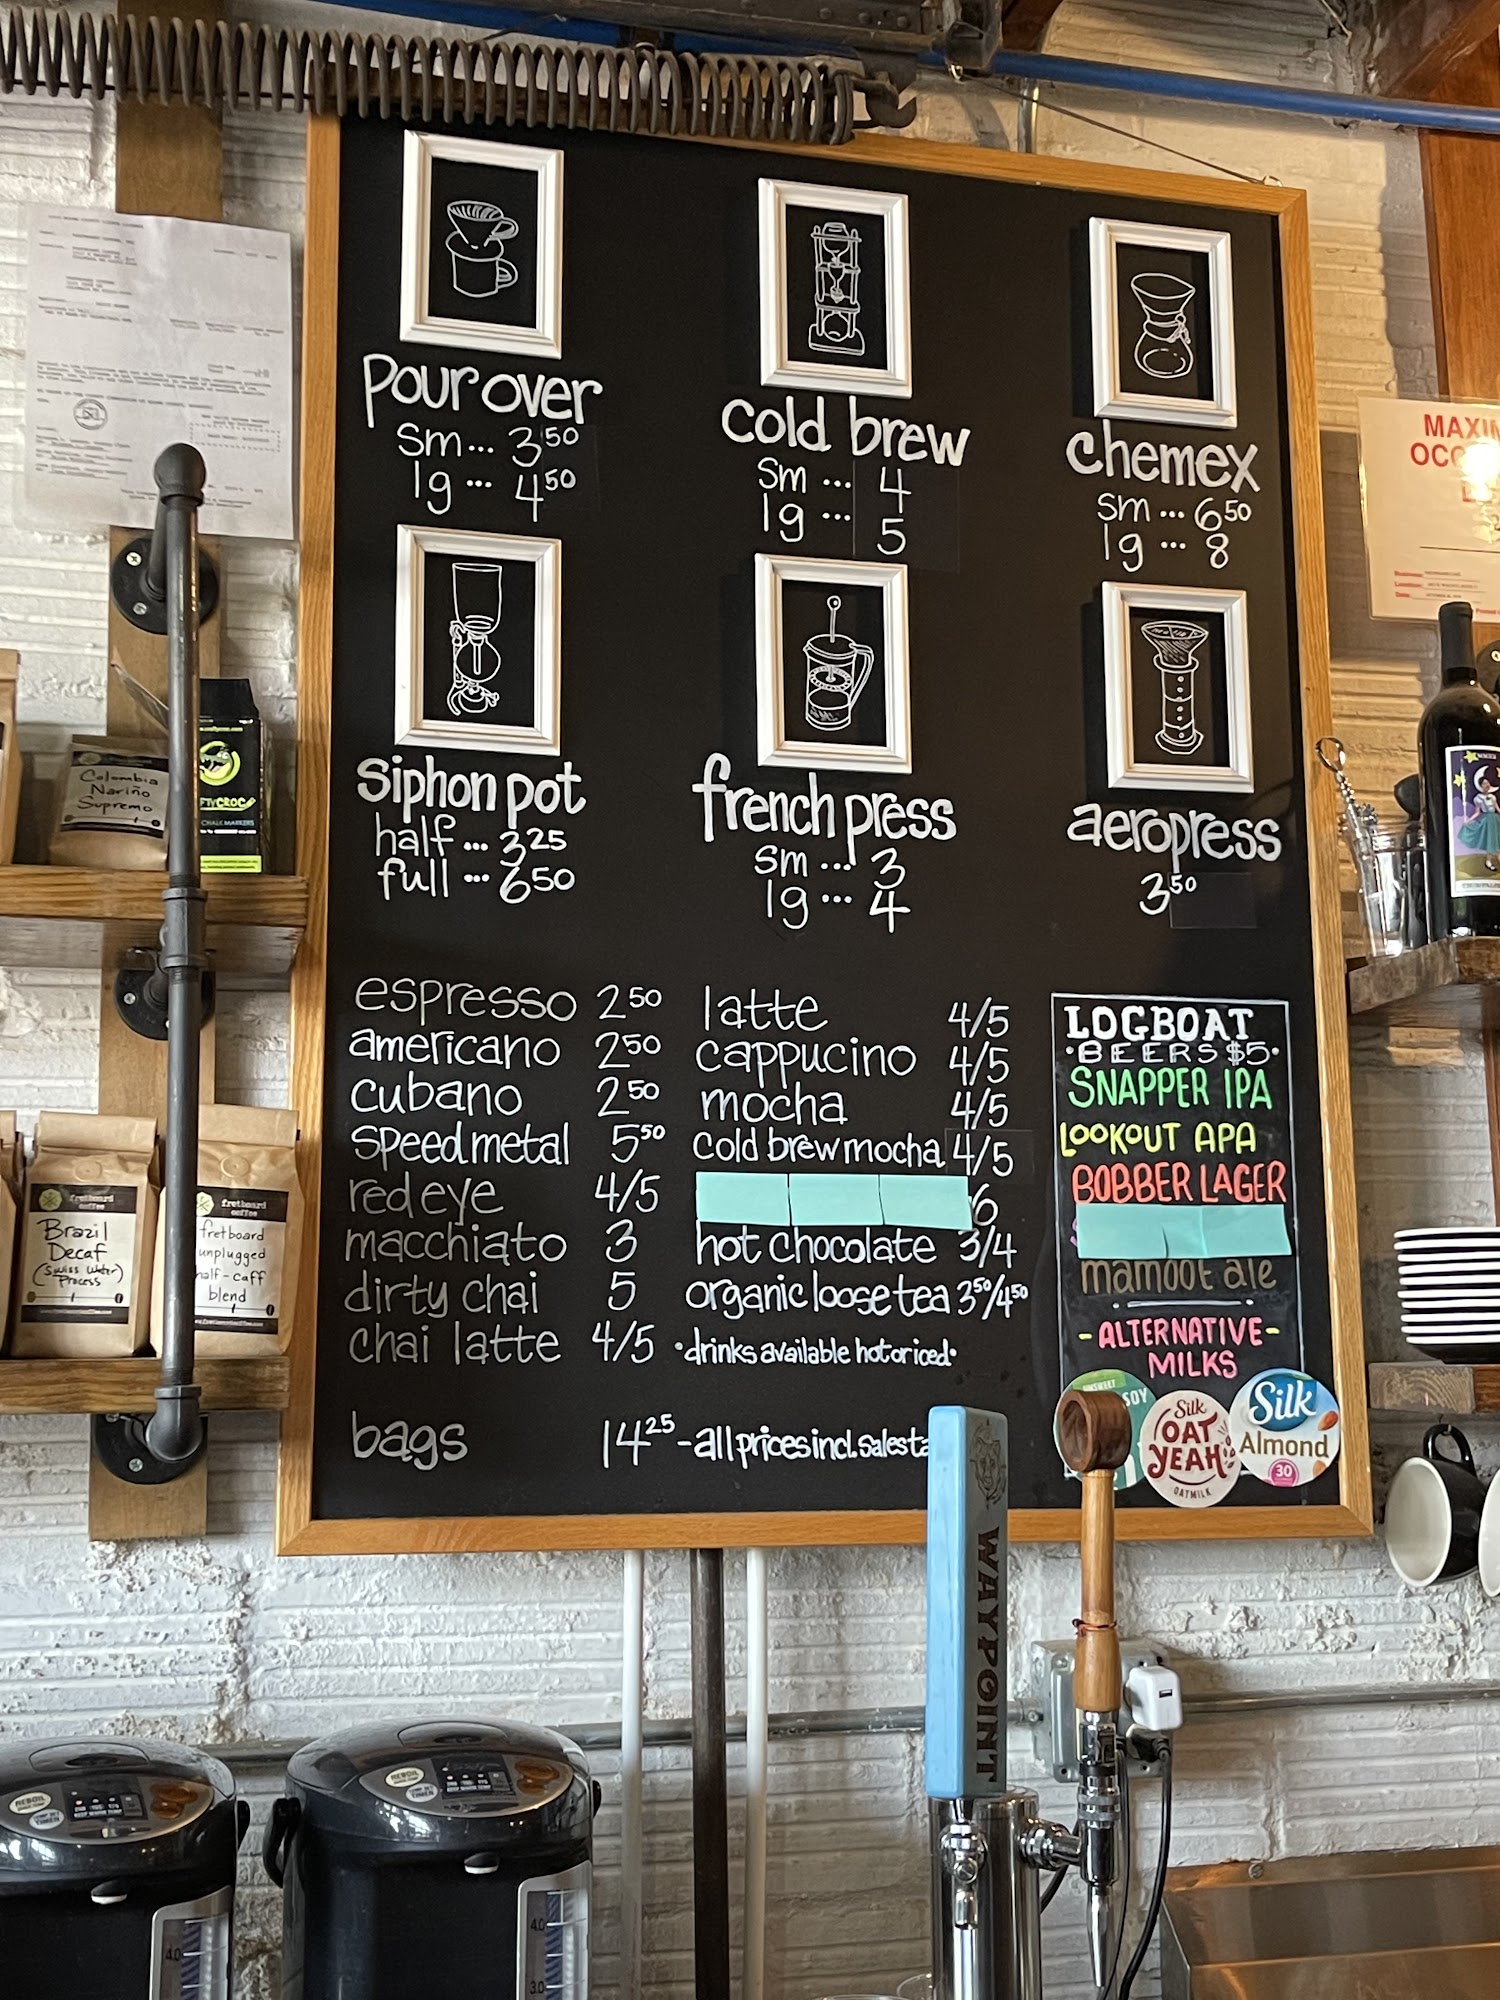 pour over
sm... 3 50
lg ... 4 50
cold brew
sm ... 4
lg ... 5
chemex
sm ... 6 50
lg ... 8
siphon pot
half ... 3 25
full ... 6 50
french press
sm ... 3
lg ... 4
aeropress
3 50
espresso 2 50
americano 2 50
cubano 2 50
speedmetal 5 50
red eye 4/5
macchiato 3
dirty chai 5
chai latte 4/5
latte 4/5
cappucino 4/5
mocha 4/5
cold brew mocha 4/5
/6
hot chocolate 3/4
organic loose tea 3 50/4 50
•drinks available hot or iced•
bags 14 25 - all prices incl. sales ta
LOGBOAT
•BEERS $5•
SNAPPER IPA
LOOKOUT APA
BOBBER LAGER
mamoot ale
-ALTERNATIVE-
MILKS
SOY
Silk
OAT
YEAH
OATMILK
Silk
Almond
30
WAYPOINT
MAXI
OCC
Colombia
Nariño
Supremo
FTYCROC
CHALK MARKERS
fretboard
coffee
Brazil
Decaf
(Swiss Water)
Process
fretboard
coffee
fretboard
unplugged
half-caff
blend
REBOIL
REBOIL
4.0
4.0
3.0